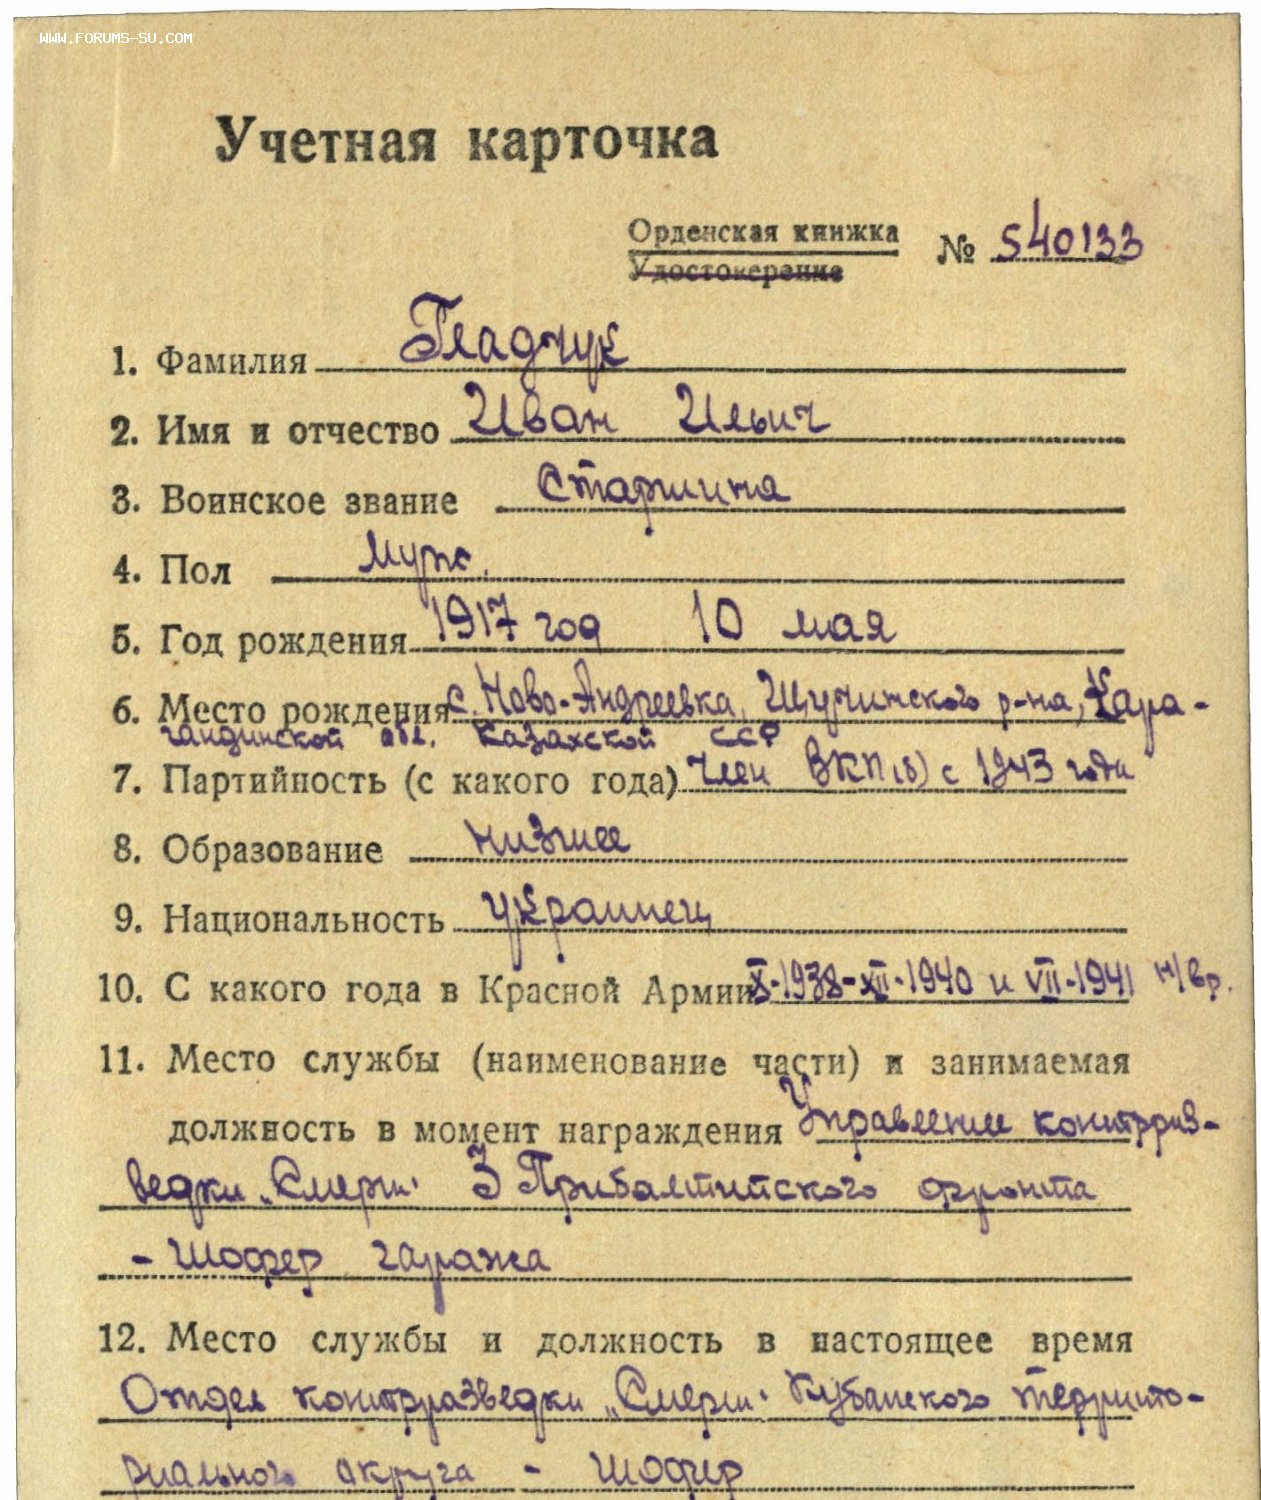 WWW.FORUMS-SU.COM
Учетная карточка
Орденская книжка № 540133
Удостоверение
1. Фамилия Гладчук
2. Имя и отчество Иван Ильич
3. Воинское звание Старшина
4. Пол Муж.
5. Год рождения 1917 год 10 мая
6. Место рождения с. Ново-Андреевка, Щучинского р-на, Кара-
гандинской обл. Казахской ССР
7. Партийность (с какого года) Член ВКП(б) с 1943 года
8. Образование низшее
9. Национальность украинец
10. С какого года в Красной Армии X-1938-XII-1940 и VII-1941 н/вр.
11. Место службы (наименование части) и занимаемая
должность в момент награждения Управление контрраз-
ведки „Смерш" 3 Прибалтийского фронта
- Шофер гаража
12. Место службы и должность в настоящее время
Отдел контрразведки „Смерш" Кубанского террито-
риального округа - шофер